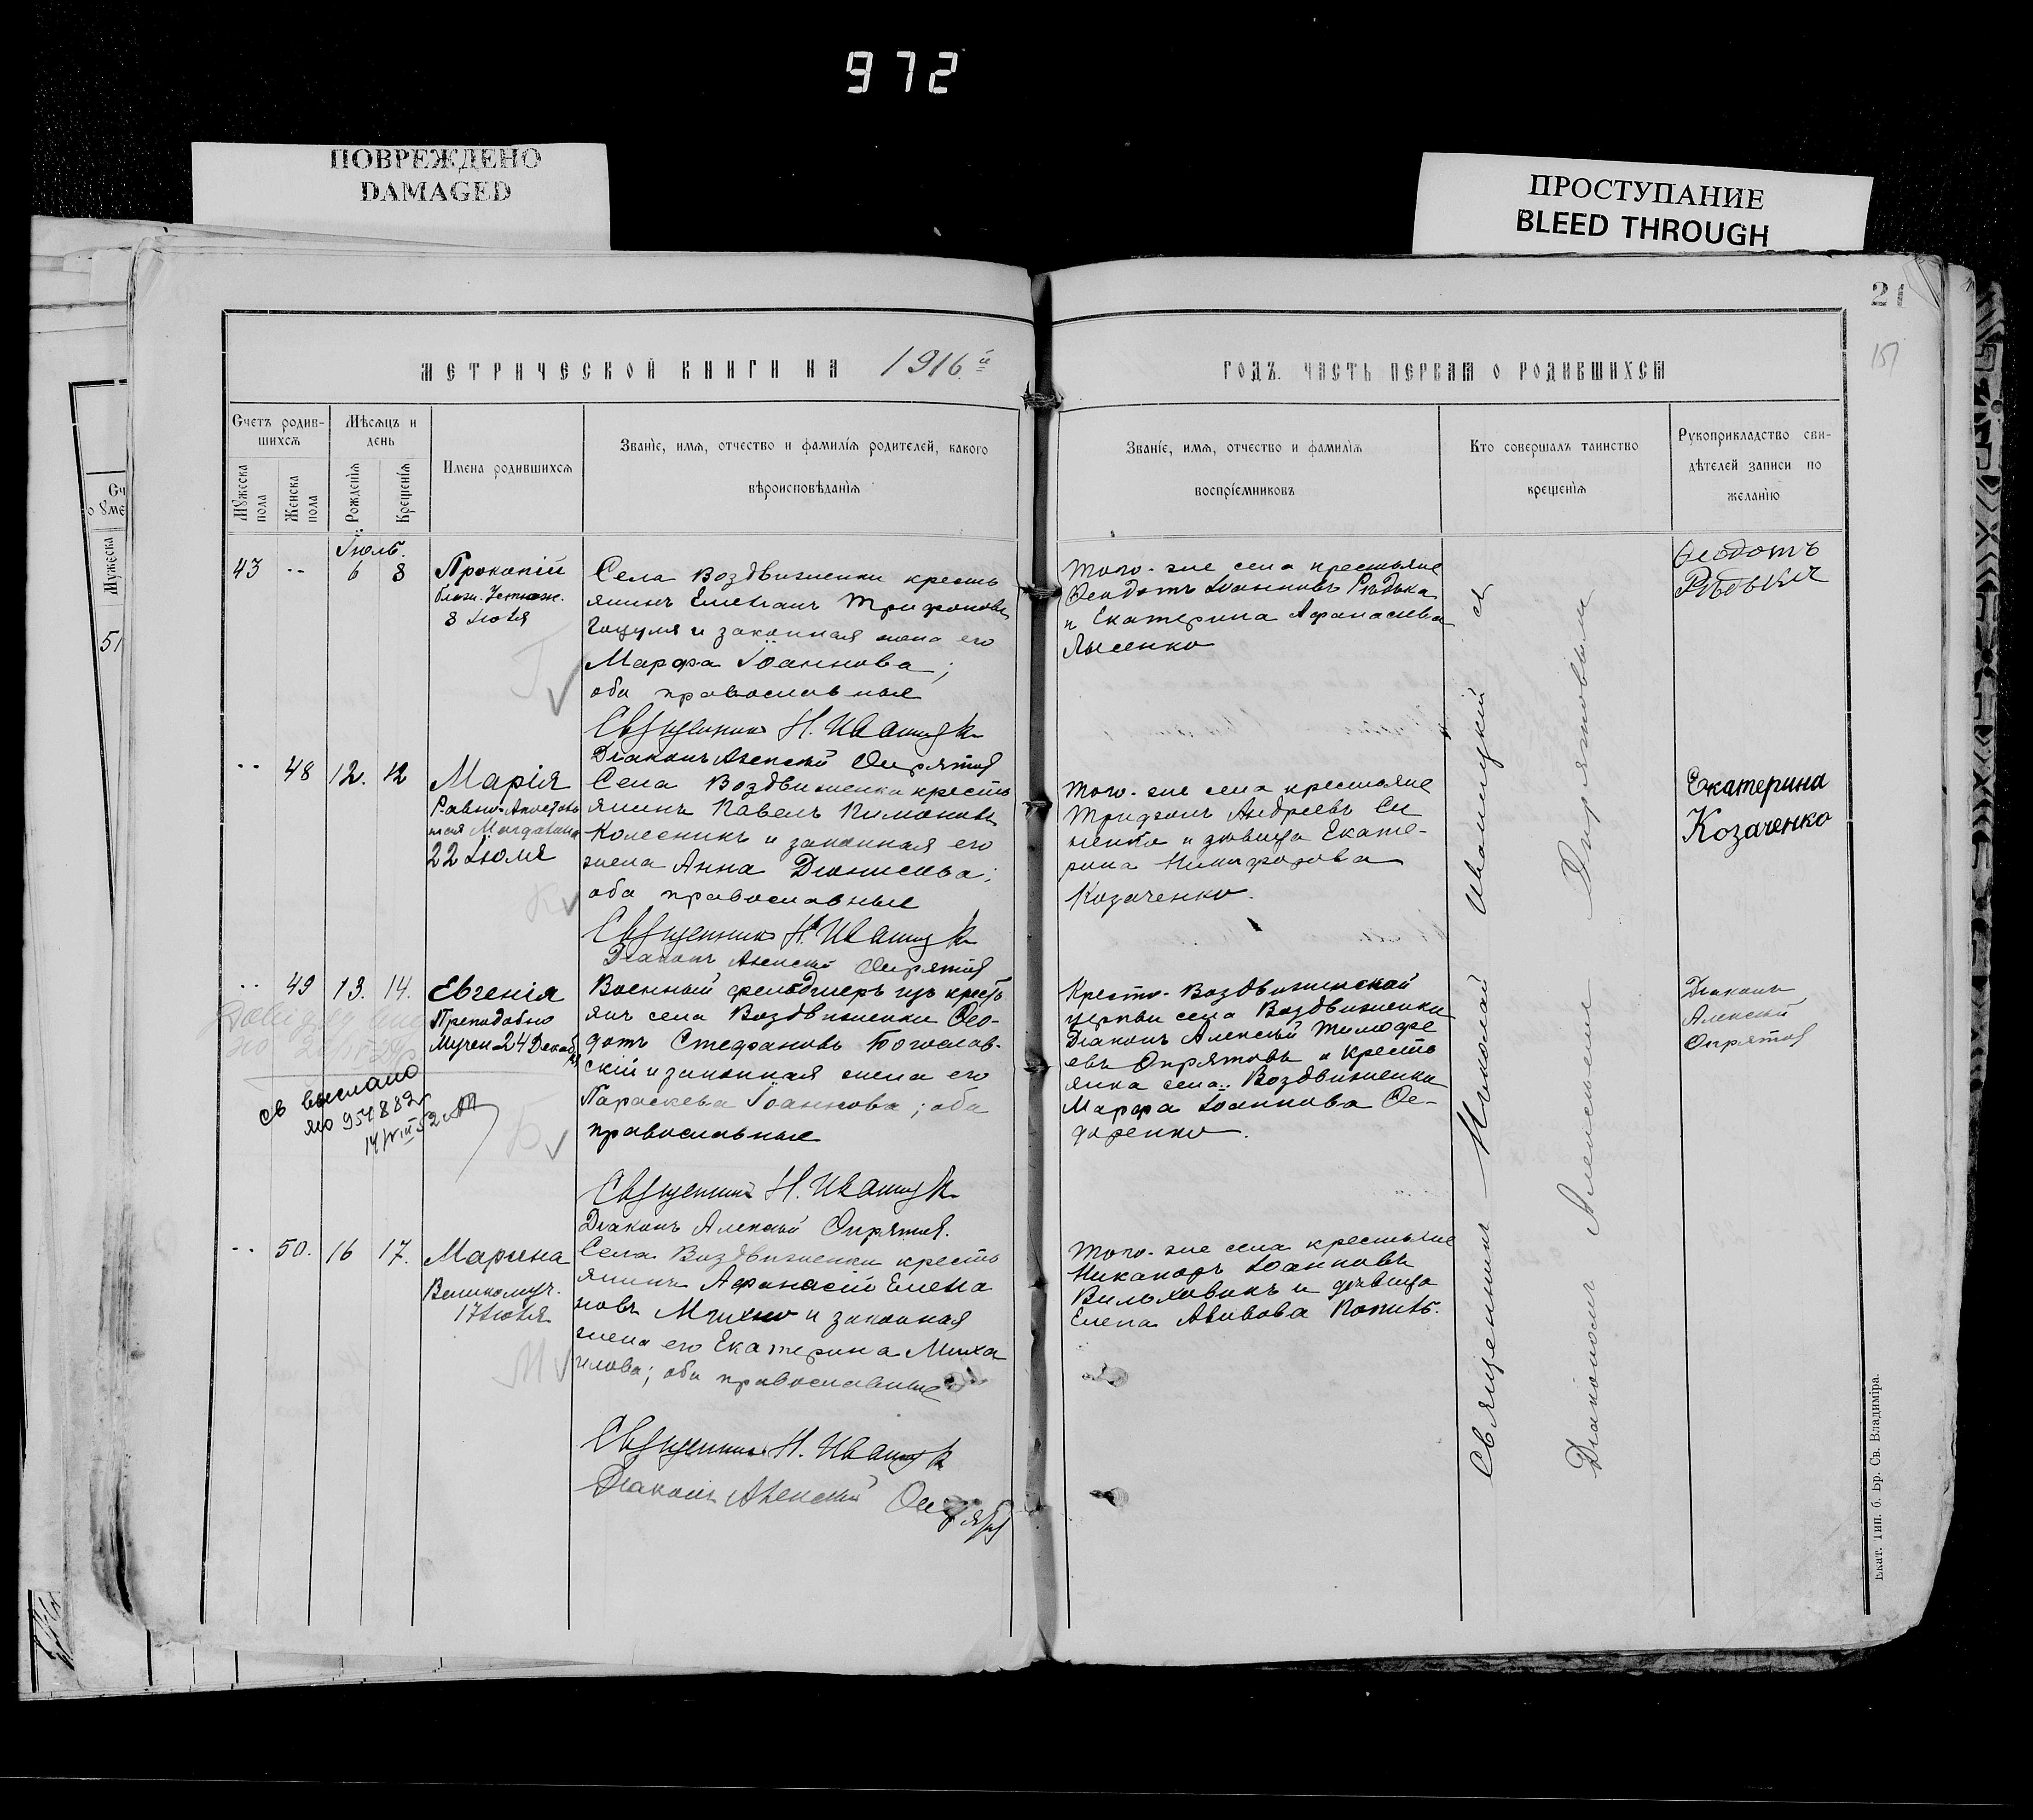 972
ПОВРЕЖДЕНО
DAMAGED
ПРОСТУПАНИЕ
BLEED THROUGH
21
151
МЕТРИЧЕСКОЙ КНИГИ НА 1916й
ГОДЪ. ЧАСТЬ ПЕРВАЯ О РОДИВШИХСЯ
Счетъ родив-
шихся
Мѣсяцъ и
день
Мужеска
пола
Женска
пола
Рожденія
Крещенія
Имена родившихся
Званіе, имя, отчество и фамилія родителей, какого
вѣроисповѣданія
Званіе, имя, отчество и фамилія
воспріемниковъ
Кто совершалъ таинство
крещенія
Рукоприкладство сви-
дѣтелей записи по
желанію
Мужеска
51
Іюль.
43 -- 6 8
Прокопій
8 Іюля
Села Воздвиженки кресть
янинъ Емеліанъ Трифоновъ
Гоцуля и законная жена его
Марфа Іоаннова;
оба православные
Священникъ Н. Иваницк
Діаконъ Алексій Опрятов
Того-же села крестьяне
Ѳеодотъ Іоанновъ Рѣдька
и Екатерина Афанасіева
Лысенко
Ѳеодотъ
Рѣдька
-- 48 12. 12
Марія
Равно-Апостоль
ная Магдалина
22 Іюля
Села Воздвиженки кресть
янинъ Павелъ Пимоновъ
Колесникъ и законная его
жена Анна Діонисіева;
оба православные
Священникъ Н. Иваницк
Діаконъ Алексій Опрятов
Того-же села крестьяне
Трифонъ Андреевъ Си
ненко и дѣвица Екате-
рина Никифорова
Козаченко.
Екатерина
Козаченко
-- 49 13. 14.
Евгенія
Преподобно
Мучен 24 Декаб
св выслано
14/VIII 52
Военный фельдшеръ изъ кресть
янъ села Воздвиженки Ѳео-
дотъ Стефановъ Богослав-
скій и законная жена его
Параскева Іоаннова; оба
православные
Священникъ Н. Иваницк
Діаконъ Алексій Опрятов.
Кресто-Воздвиженской
церкви села Воздвиженки
Діаконъ Алексій Тимофе
евъ Опрятовъ и кресть
янка села Воздвиженки
Марфа Іоаннова Ѳе-
доренко.
Діаконъ
Алексій
Опрятов
-- 50. 16 17.
Марина
Великомуч.
17 Іюля
Села Воздвиженки кресть
янинъ Афанасій Емелiа
новъ Михно и законная
жена его Екатерина Миха
илова; оба православные
Священникъ Н. Иваницк
Діаконъ Алексій Опрятов
Того-же села крестьяне
Никаноръ Іоанновъ
Вильховикъ и дѣвица
Елена Авивова
Священникъ Николай Иваницкій съ
Діакономъ Алексіемъ Опрятовымъ
Екат. Тип. б. Бр. Св. Владиміра.